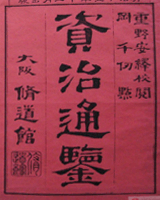 重野安繹校閱
岡千仞點
資治通鑑
大阪 脩道館